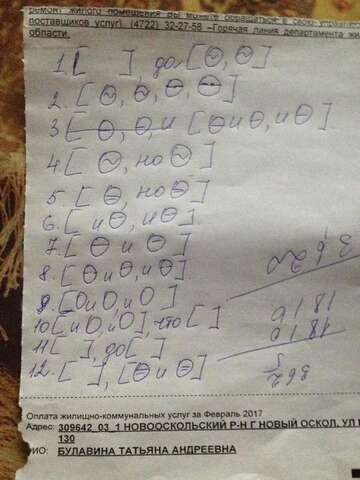 ремонт жилого помещения Вы можете обращаться в свою управл
поставщиков услуг). (4722) 32-27-58 -Горячая линия департамента жи
области.
1. [ ], до [⊖, ⊖]
2. [⊖, ⊖, ⊖, ⊖]
3 [⊖, ⊖, и [⊖ и ⊖, и ⊖]
4 [~, но ~]
5. [⊖, но ⊖]
6. [ и ⊖, и ⊖]
7. [⊖ и ⊖]
8. [⊖ и ⊖, и ⊖]
9. [О и О, и О]
10 [и О, и О], что [ ]
11 [ ], до [ ]
12. [ ], [⊖ и ⊖]
1816
1810
362
Оплата жилищно-коммунальных услуг за Февраль 2017
Адрес: 309642_03_1 НОВООСКОЛЬСКИЙ Р-Н Г НОВЫЙ ОСКОЛ, УЛ
130
ФИО: БУЛАВИНА ТАТЬЯНА АНДРЕЕВНА